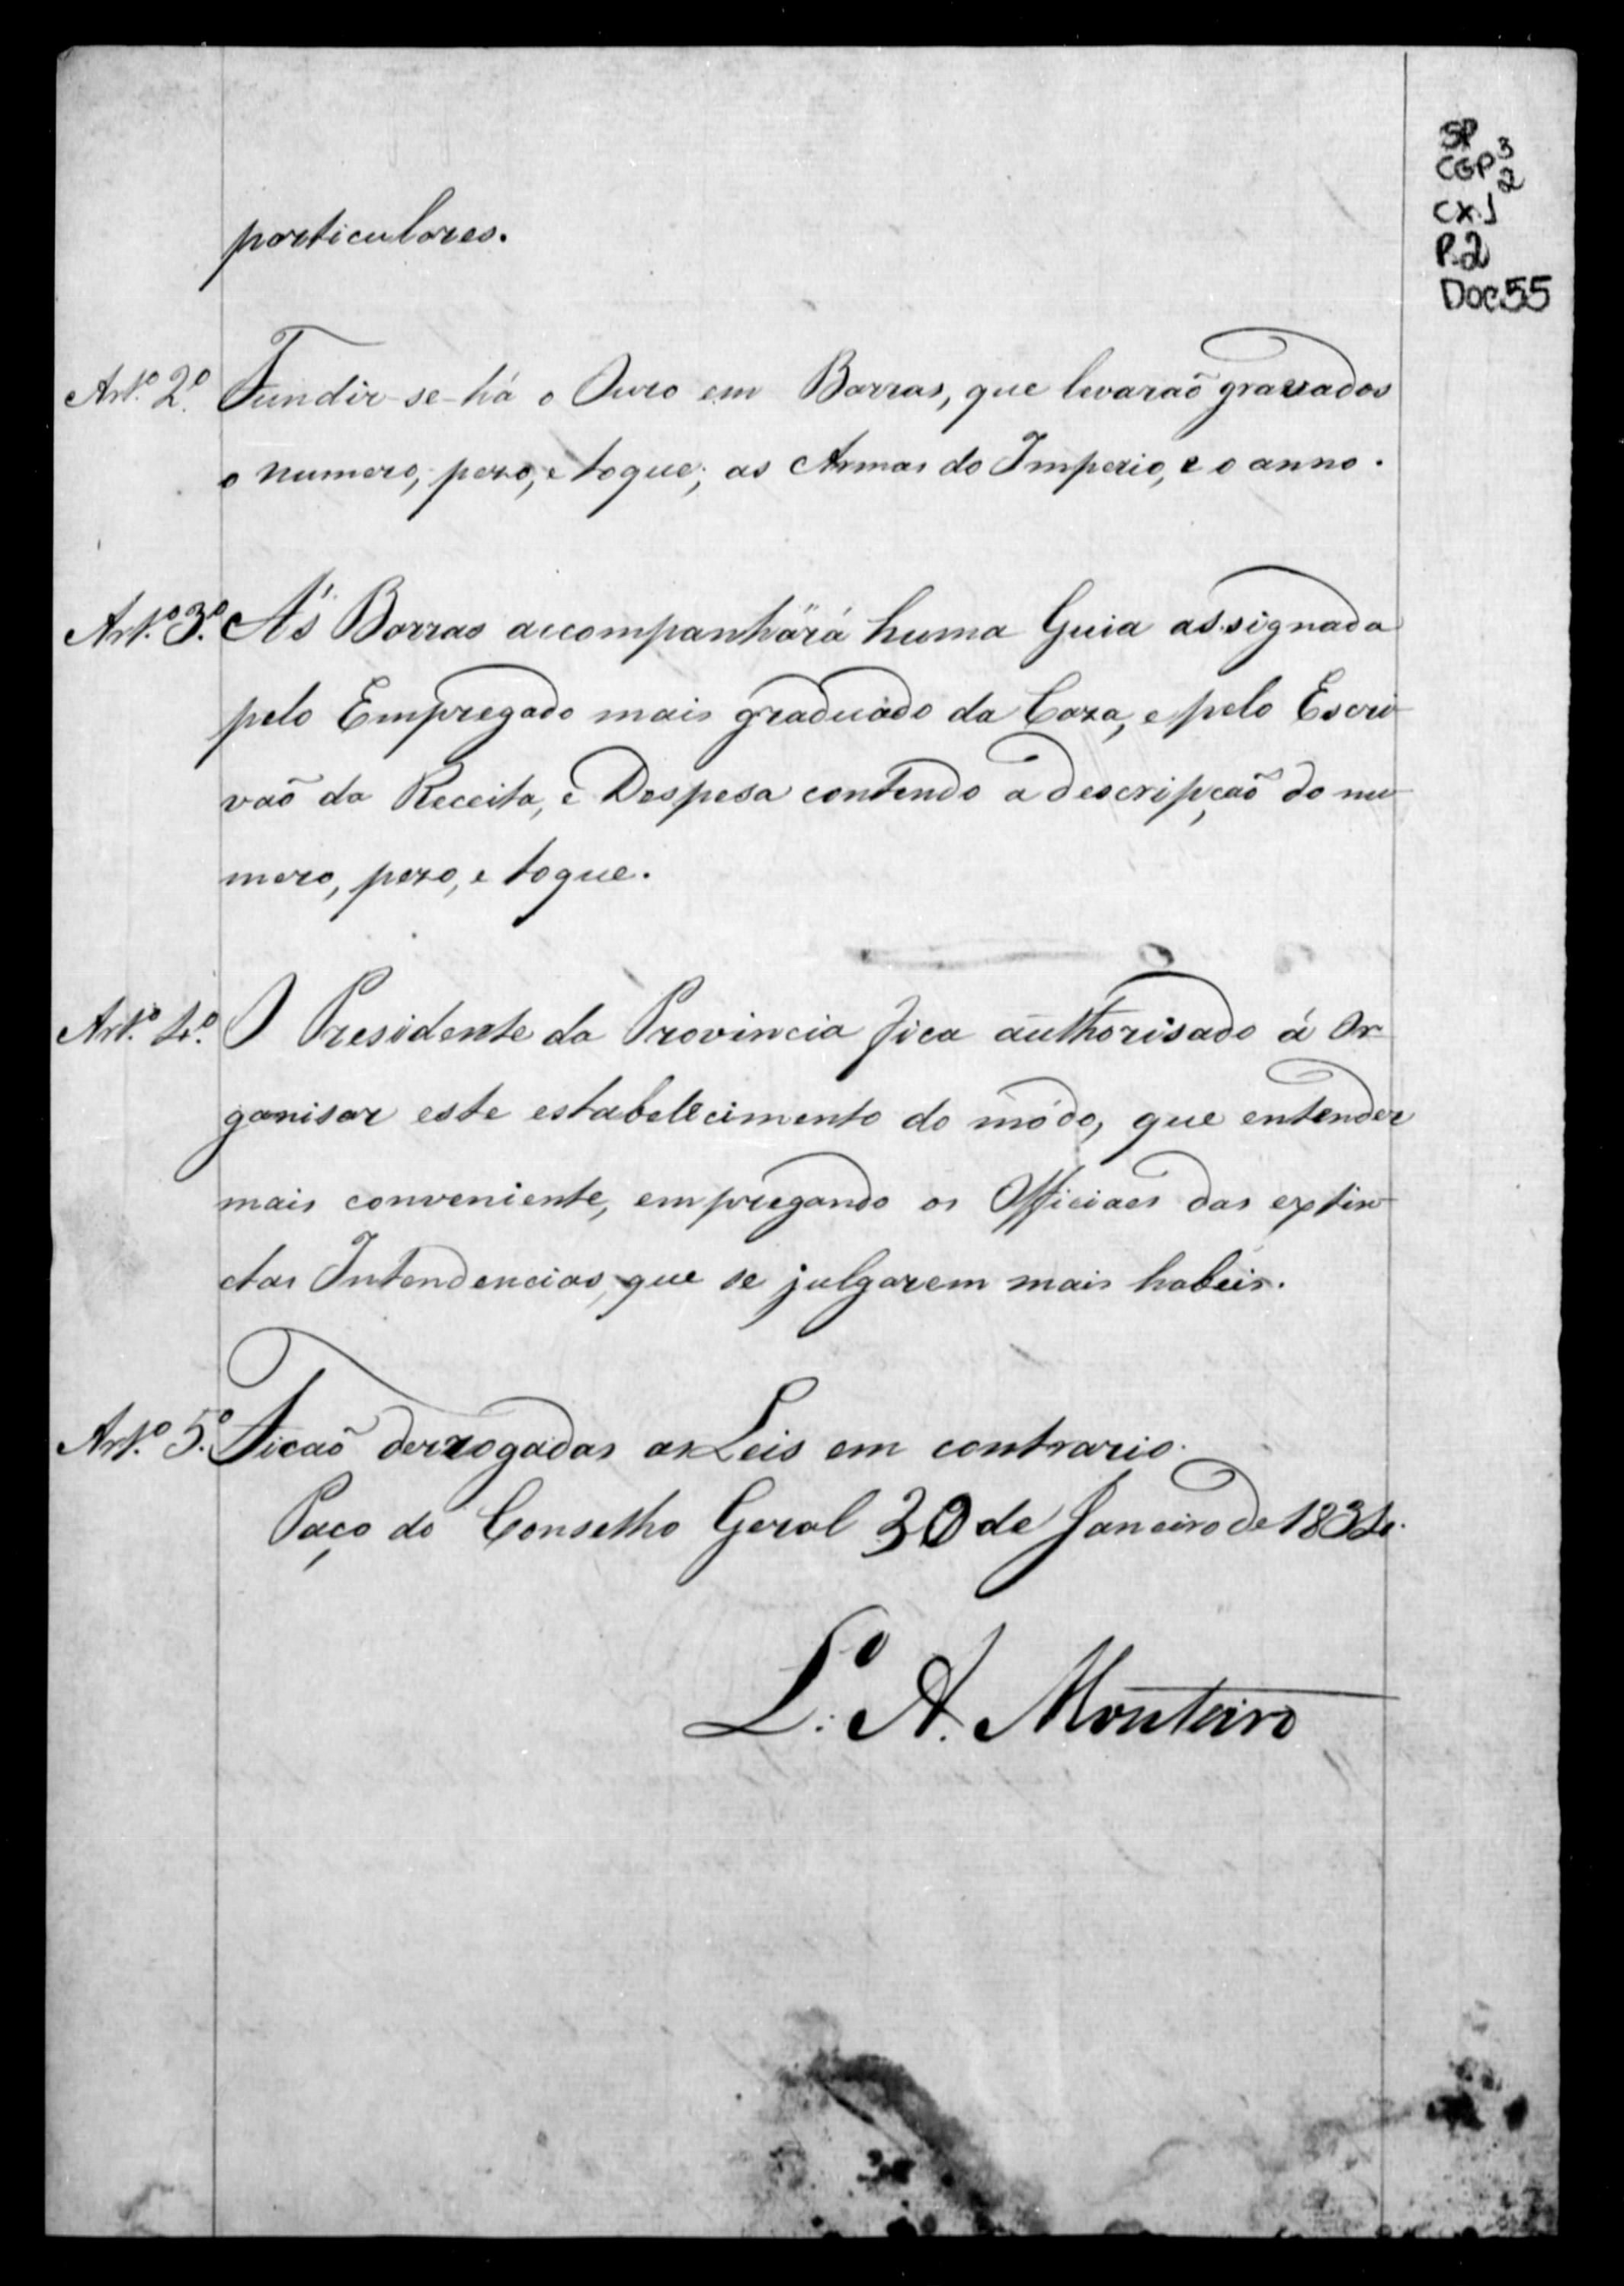 SP
CGP 3
2
CX.1
P.2
Doc.55
particulares.
Art.º 2.º Fundir-se-há o Ouro em Barras, que levaraõ gravados
o numero, pezo, e toque; as Armas do Imperio, e o anno.
Art.º 3.º A's Barras accompanhará huma Guia assignada
pelo Empregado mais graduado da Caza, e pelo Escri-
vaõ da Receita, e Despesa contendo a descripçaõ do nu-
mero, pezo, e toque.
Art.º 4.º O Presidente da Provincia fica authorisado á Or-
ganisar este estabelecimento do módo, que entender
mais conveniente, empregando os Officiaes das extin-
ctas Intendencias, que se julgarem mais habeis.
Art.º 5.º Ficaõ derrogadas as Leis em contrario.
Paço do Conselho Geral 30 de Janeiro de 1834.
L.º A. Monteiro